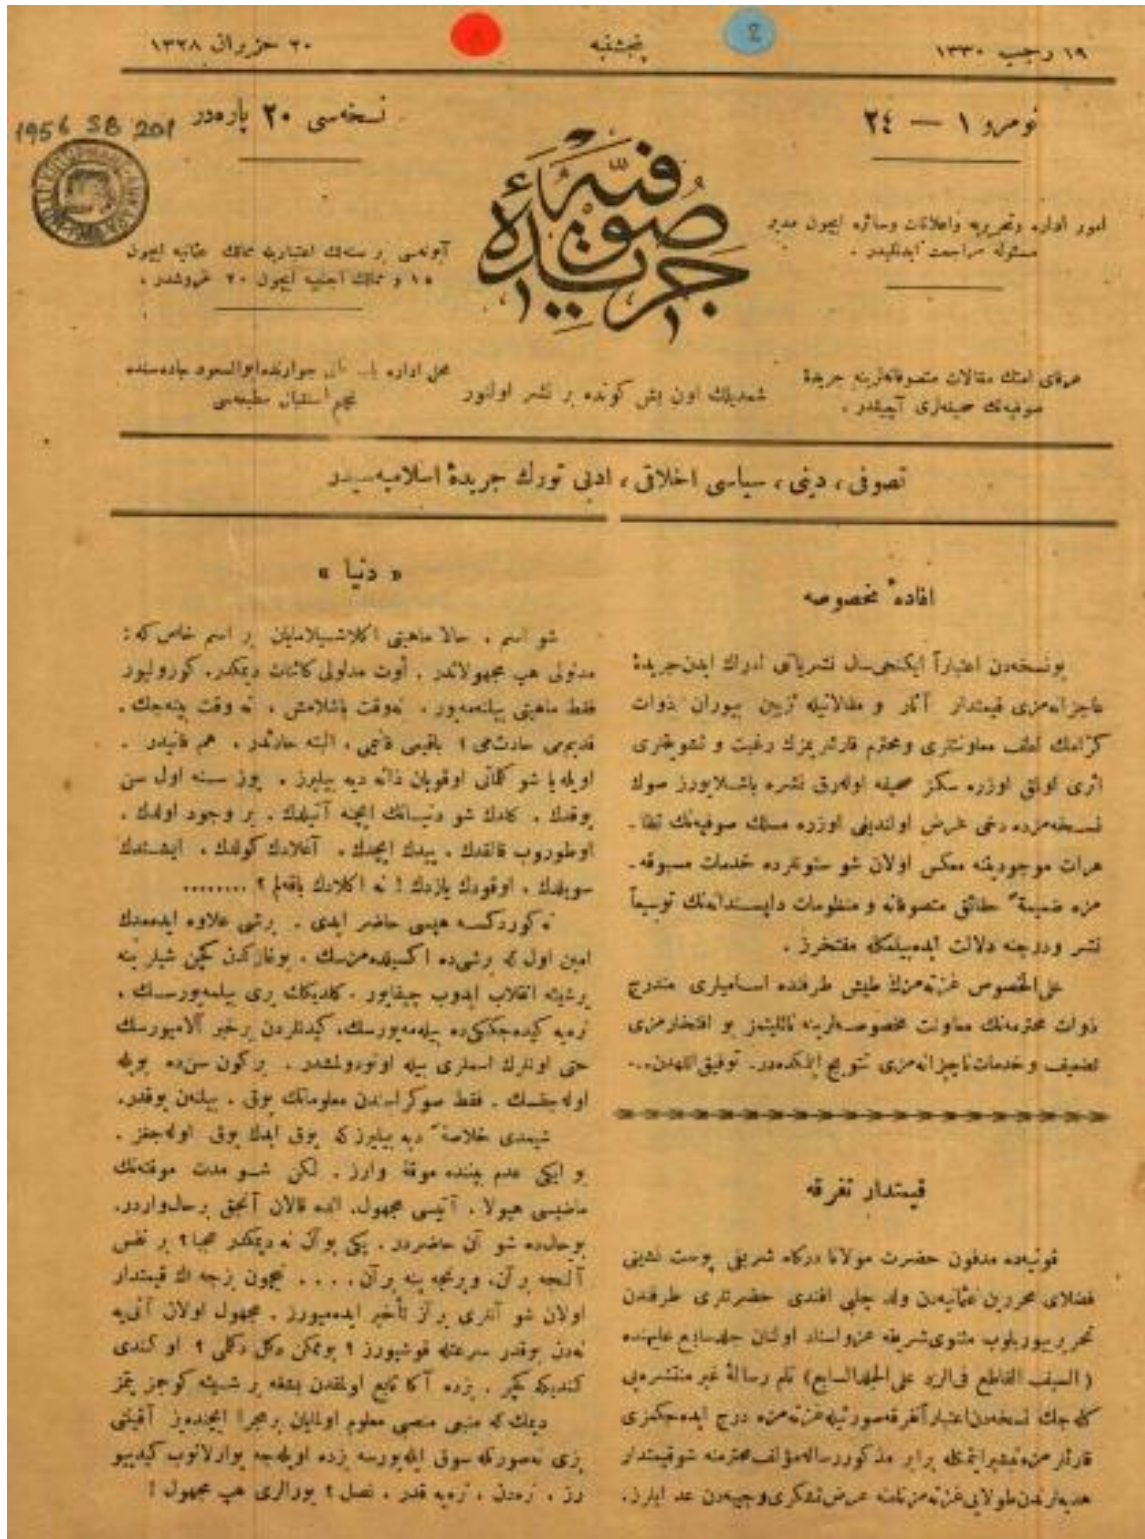 ١٩ رجب ١٣٣٠
پنجشنبه
٢٠ حزيران ١٣٢٨
2
نومرو ١ — ٢٤
نسخه‌سى ٢٠ پاره‌در
1956 SB 201
جريدهٔ صوفيه
امور اداره وتحريريه واعلانات وسائره ايچون مدير
مسئوله مراجعت ايدلميدر .
آبونه‌سى بر سنه‌لك اعتباريله ممالك عثمانيه ايچون
١٥ و ممالك اجنبيه ايچون ٢٠ غروشدر .
عرفاى امتك مقالات متصوفانه‌لرينه جريدهٔ
صوفيه‌نك صحيفه‌لرى آچيقدر .
شمديلك اون بش كونده بر نشر اولنور
محل اداره باب عالى جوارنده ابوالسعود جاده‌سنده
نجم استقبال مطبعه‌سى
تصوفى ، دينى ، سياسى اخلاقى ، ادبى تورك جريدهٔ اسلاميه‌سيدر
افادهٔ مخصوصه
بونسخه‌دن اعتباراً ايكنجى سال نشرياتى ادراك ايدن جريدهٔ
عاجزانه‌مزى قيمتدار آثار و مقالاتيله تزيين بيوران ذوات
كرامك لطف معاونتلرى ومحترم قارئلريمزك رغبت و تشويقلرى
اثرى اولق اوزره سكز صحيفه اوله‌رق نشره باشلايورز صوك
نسخه‌مزده دخى عرض اولنديغى اوزره مسلك صوفيه‌نك تظا ـ
هرات موجوديتنه معكس اولان شو ستونلرده خدمات مسبوقه ـ
مزه ضميمةً حقائق متصوفانه و منظومات دلپسندانه‌نك توسيعاً
نشر ودرجنه دلالت ايده‌بيلمكله مفتخرز .
على الخصوص غزته‌مزك طيش طرفنده اساميلرى مندرج
ذوات محترمه‌نك معاونت مخصوصه‌لرينه نائليتمز بو افتخارمزى
تضعيف و خدمات ناچيزانه‌مزى تتويج ايتمكده‌در. توفيق اللهدن..
قيمتدار تفرقه
قونيه‌ده مدفون حضرت مولانا دركاه شريفى پوست نشينى
فضلاى محررين عثمانيه‌دن ولد چلبى افندى حضرتلرى طرفندن
تحرير بيوريلوب مثنوى شريفه عزو اسناد اولنان جلد سابع عليهنده
( السيف القاطع فى الرد على الجلد السابع ) نام رسالهٔ غير منتشره‌يى
كله‌جك نسخه‌دن اعتباراً تفرقه صورتيله غزته‌مزه درج ايده‌جكمزى
قارئلرمزه تبشير ايتمكله برابر مذكور رساله مؤلف محترمنه شو قيمتدار
هديه‌لرندن طولايى غزته‌مز نامنه عرض تشكرى وجيبه‌دن عد ايلرز.
« دنيا »
شو اسم ، حالا ماهيتى اكلاشيلامايان بر اسم خاص كه :
مدلولى هپ مجهولاتدر . أوت مدلولى كائنات ديمكدر. كورولیور
فقط ماهيتى بيلنه‌ميور . نه‌وقت باشلامش ، نه وقت بيته‌جك .
قديم‌مى حادث‌مى ؟ باقيمى فانيمى ، البته حادثدر . هم فانيدر .
اويله يا شو كلماتى اوقويان ذاته ديه بيليرز . يوز سنه اول سن
يوقدك . كلدك شو دنيانك ايچنه آتيلدك . بر وجود اولدك .
اوطوروب قالقدك . ييدك ايچدك . آغلادك كولدك . ايشتدك
سويلدك . اوقودك يازدك ! نه اكلادك باقه‌لم ؟ ........
نه كوردكسه هپسى حاضر ايدى . برشى علاوه ايده‌مدك
امين اول كه برشى‌ده اكسيلده‌مزسك . بوغازكدن كچن شيلر ينه
برشيئه انقلاب ايدوب چيقايور . كلديكك يرى بيله‌ميورسك .
نره‌يه كيده‌جككى‌ده بيله‌ميورسك. كيدنلردن برخبر آلاميورسك
حتى اونلرك اسملرى بيله اونودولمشدر . بركون سن‌ده بويله
اوله‌جقسك . فقط صوكراسندن معلوماتك يوق . بيلنن يوقدر.
شيمدى خلاصةً ديه بيليرز كه يوق ايدك يوق اوله‌جغز .
بو ايكى عدم بيننده موقة وارز . لكن شو مدت موقته‌نك
ماضيسى هيولا . آتيسى مجهول. الده قالان آنجق برحال واردر.
بوحال‌ده شو آن حاضردر . پكى بوآن نه ديمكدر عجبا ؟ بر نفس
آلنجه برآن، ويرنجه ينه برآن . . . . نيچون بزجه اك قيمتدار
اولان شو آنلرى برآز تأخير ايده‌ميورز . مجهول اولان آتى‌يه
نه‌دن بوقدر سرعتله قوشيورز ؟ بوممكن دكل دكلى ؟ او كندى
كنديكه كچر . بزده آكا تابع اولمقدن بشقه بر شيئه كوجز يتمز
ديمك كه منبع منصبى معلوم اولمايان برمجرا ايچنده‌يز آقينتى
بزى نه‌صورتله سوق ايليورسه بزده اويله‌جه يوارلانوب كيدييو
رز . نره‌دن ، نره‌يه قدر . نصل ؟ بورالرى هپ مجهول !